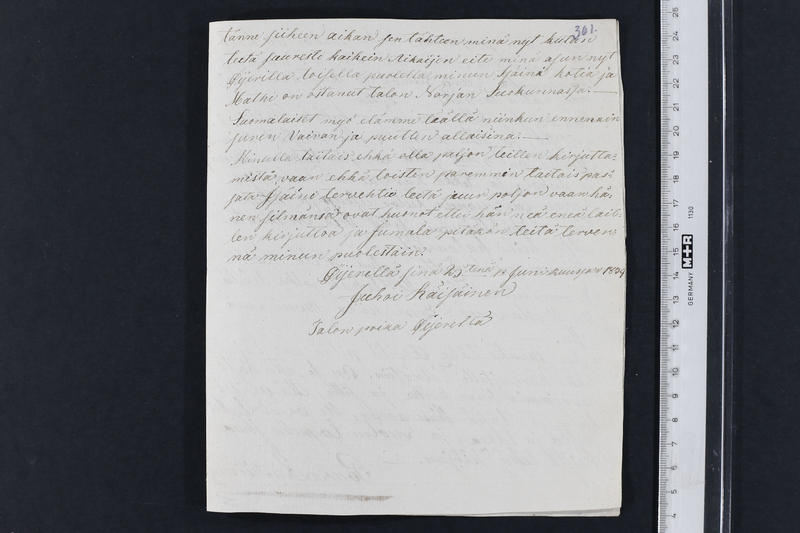 301.
tänne siiheen aikan jen tähteen minä nyt kutun
teetä suureste kaikein Aikaijen eite minä asun nyt
Øyerillä toisella puolella minun Isäinä kotia ja
Mathi on ostanut talon Norjan Suokunnassa.
Suomalaiset myö elämme täällä niinkun ennenain
suren Vaivan ja puutten allaisina.
Minulla taitais ehkä olla paljon teillen kirjutta-
mista, vaan ehkä toisten paremmin taitais pas-
jata Isäini tervehtiä teitä juun poljon vaan hä-
nen silmänsä ovat huonot ettei hän neä eneä teit-
len kirjuttoa ja Jumala pitäkän teitä terven-
nä minun puolestain.
Øyerellä sinä 29 tenä p Juni kuusa 1839
Juhoi Räisäinen
Talon poika Øyerillä
GERMANY
M+R
1130
26
25
24
23
22
21
20
19
18
17
16
15
14
13
12
11
10
9
8
7
6
5
4